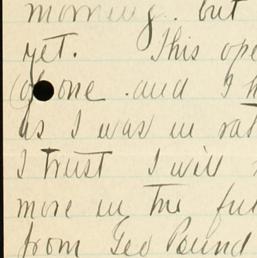 morning. but
yet. This ope
one and I h
as I was in rat
I trust I will
more in the fu
from Geo Pound